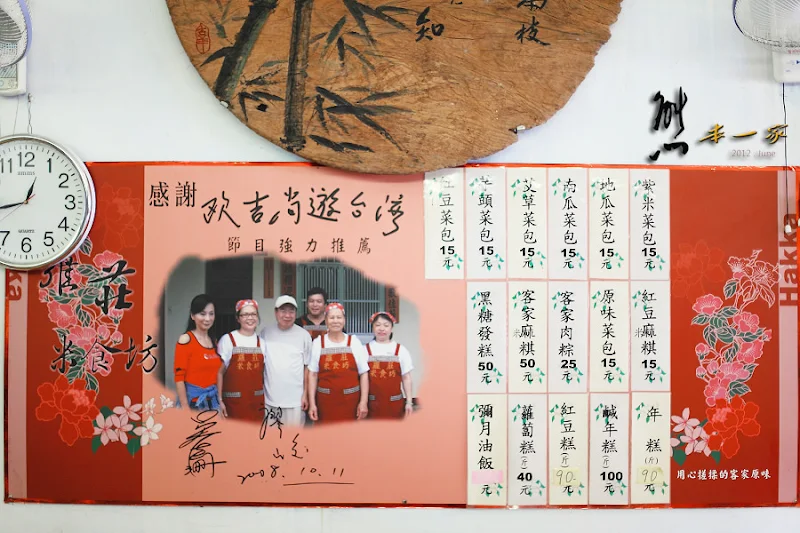 南枝
知
熊 本一家
2012 June
12
1
2
3
4
5
6
7
8
11
QUARTZ
感謝 歐吉尚遊台灣
節目強力推薦
雅莊
米食坊
2008.10.11
紫米菜包15元
地瓜菜包15元
南瓜菜包15元
艾草菜包15元
芋頭菜包15元
紅豆菜包15元
紅豆麻糬15元
原味菜包15元
客家肉粽25元
客家麻糬50元
黑糖發糕50元
年糕(斤)90元
鹹年糕(斤)100元
紅豆糕(斤)90元
蘿蔔糕(斤)40元
彌月油飯 元
Hakka
用心搓揉的客家原味